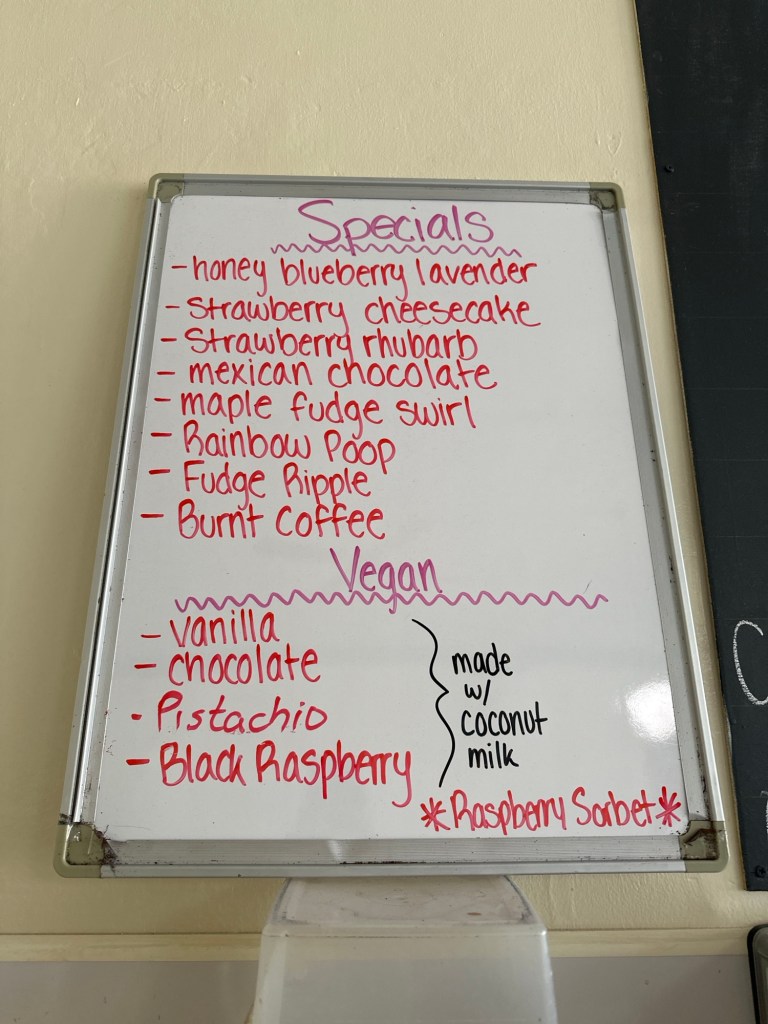 Specials
- honey blueberry lavender
- Strawberry cheesecake
- Strawberry rhubarb
- mexican chocolate
- maple fudge swirl
- Rainbow Poop
- Fudge Ripple
- Burnt Coffee
Vegan
- vanilla
- chocolate
- Pistachio
- Black Raspberry
made
w/
coconut
milk
*Raspberry Sorbet*